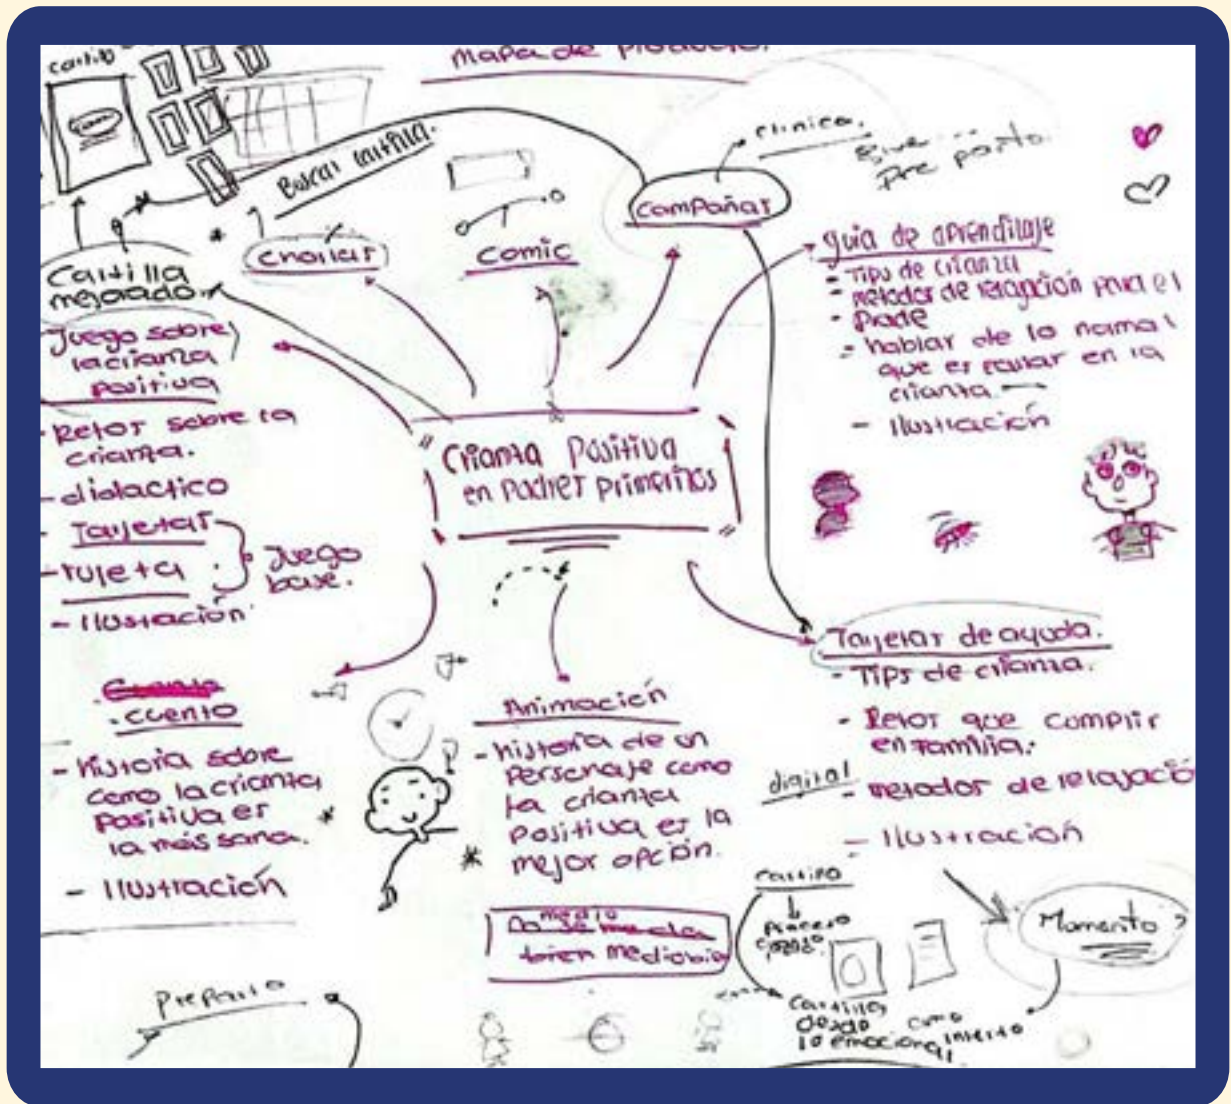 mapa de
clinica.
Pre parto.
Buscar cartilla.
campañas
charlas
comic
Cartilla
mejorado.
guia de aprendizaje
- Tips de crianza
- metodos de relajación para el
- Padre
- hablar de lo normal
que es
en la
crianza.
- Ilustración
Juego sobre
la crianza
positiva
- Retos sobre la
crianza.
- didactico
- Tarjetas
- ruleta
Juego
base.
- Ilustración
Crianza Positiva
en padres primerizos
Tarjetas de ayuda.
- Tips de crianza.
- Retos que cumplir
en familia.
digital
- metodos de relajació
- Ilustración
. cuento
- historia sobre
como la crianza
positiva es
la más sana.
- Ilustración
Animación
- historia de un
personaje como
la crianza
positiva es la
mejor opción.
medio
Momento?
Preparto
Cartilla
desde
lo emocional
como